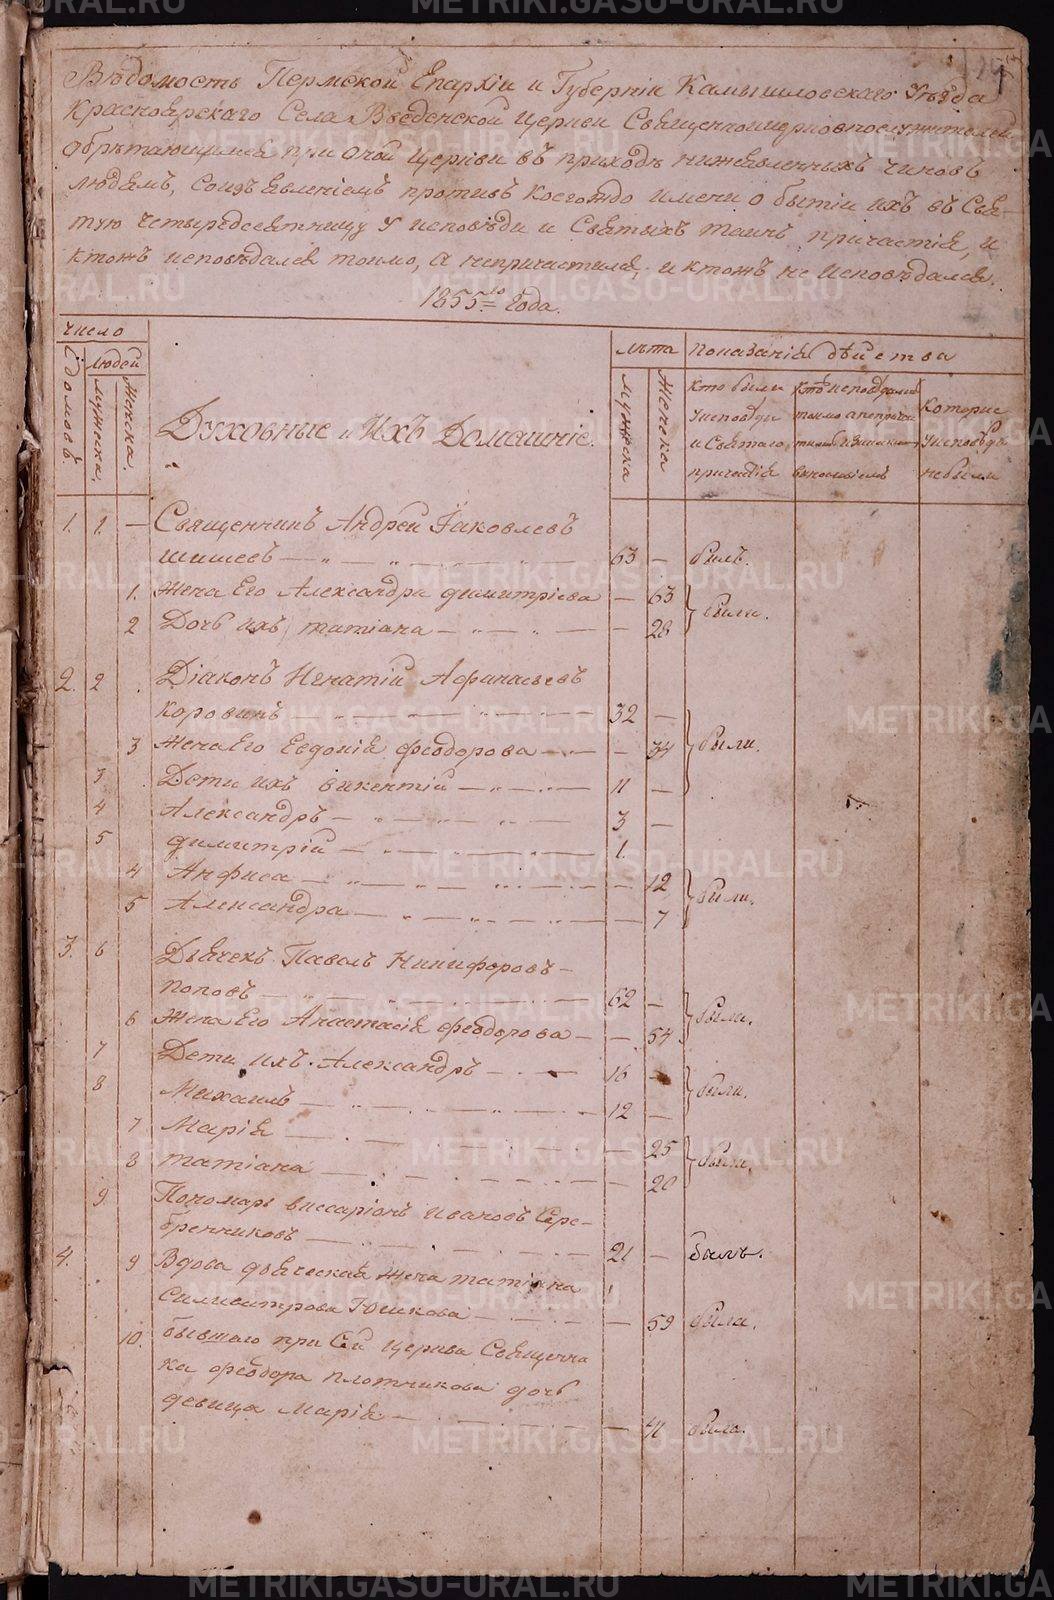 Вѣдомость Пермской Епархіи и Губерніи Камышловскаго Уѣзда
Красноярскаго Села Введенской Церкви Священноцерковнослужителей
обрѣтающимся при оной Церкви въ приходѣ нижеявленныхъ чиновъ
людемъ, соизъявленіемъ противъ коегождо имени о бытіи ихъ въ Свя-
тую четыредесятницу у исповѣди и Святыхъ таинъ причастія, и
ктожъ исповѣдался токмо, а непричастился, и ктожъ не исповѣдался.
1855го Года.
число
домовъ.
людей
мужеска.
женска.
Духовные и Ихъ Домашніе.
лѣта
мужеска
женска
показанія дѣйства
кто были
уисповѣди
и Святаго
причастія
кто исповѣдался
токмо а непричас
Которые
уисповѣди
небыли
1. 1. — Священникъ Андрей Іаковлевъ
Шишевъ — 63 — былъ.
1. Жена Его Александра димитріева — 63
2 Дочь ихъ татіана — — 28 были.
2. 2 Діаконъ Игнатій Афанасьевъ
Коровинъ — 32 —
3 Жена Его Евдокія феодорова — — 34 были.
3 Дети ихъ викентій — 11 —
4 Александръ — 3 —
5 димитрій — 1.
4 Анфиса — — 12
5 Александра — — 7 были.
3. 6 Дьячекъ Павелъ Никифоровъ —
Поповъ — 62 —
6 Жена Его Анастасія феодорова — — 54 были.
7 Дети ихъ Александръ — 16 —
8 Михаилъ — 12 — были.
7 Марія — — 25
8 татіана — — 20 были.
9 Пономарь виссаріонъ Ивановъ Сере-
бренниковъ — 21 — былъ.
4. 9 Вдова дьяческая жена татіана
Силивитрова Юшкова — — 59 была.
10. бывшаго при Сей Церкви Священни
ка феодора плотникова дочь
девица Марія — — 41 была.
METRIKI.GASO-URAL.RU